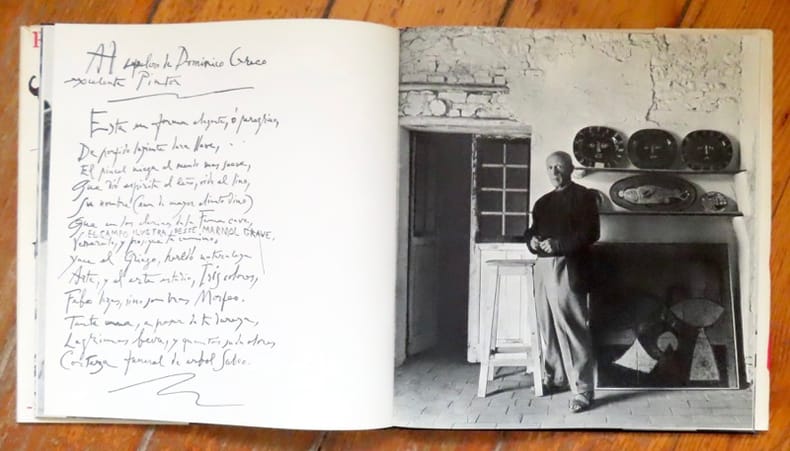 Al sepulcro de Dominico Greco
excelente Pintor
Esta en forma elegante, ó peregrino,
De porfido luziente dura llave,
El pincel niega al mundo mas suave,
Que dió espiritu al leño, vida al lino,
Su nombre (aun de mayor aliento dino)
Que en los clarines de la Fama cave,
EL CAMPO ILUSTRA DESSE MARMOL GRAVE,
Venerale, y prosigue tu camino,
Yace el Griego, heredó naturaleza
Arte, y el arte estudio, Iris colores,
Febo luzes, sino sombras Morfeo.
Tanta urna, a pesar de su dureza,
Lagrimas beva, y quantos suda olores
Corteza funeral de arbol Sabeo.